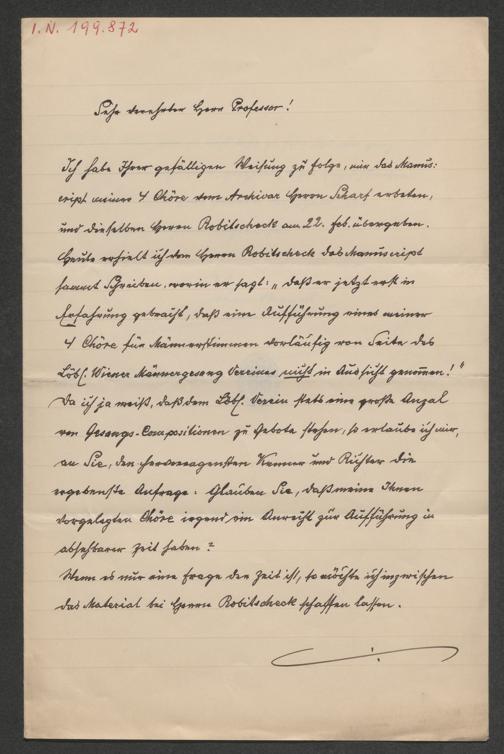 I. N. 199.872
Sehr verehrter Herr Professor!
Ich habe Ihrer gefälligen Weisung zu folge, mir das Manus:
cript meiner 4 Chöre vom Archivar Herrn Scharf erbeten,
und dieselben Herrn Robitscheck am 22. Feb. übergeben.
Heute erhielt ich von Herrn Robitscheck das Manuscript
sammt Schreiben, worin er sagt: „daß er jetzt erst in
Erfahrung gebracht, daß eine Aufführung eines meiner
4 Chöre für Männerstimmen vorläufig von Seite des
Löbl. Wiener Männergesang Vereines nicht in Aussicht genommen!"
Da ich ja weiß, daß dem Löbl. Verein stets eine große Anzal
von Gesangs-Compositionen zu Gebote stehen, so erlaube ich mir,
an Sie, den hervorragensten Kenner und Richter die
ergebenste Anfrage: Glauben Sie, daß meine Ihnen
vorgelegten Chöre irgend ein Anrecht zur Aufführung in
absehbarer Zeit haben?
Wenn es nur eine Frage der Zeit ist, so möchte ich inzwischen
das Material bei Herrn Robitscheck schaffen lassen.